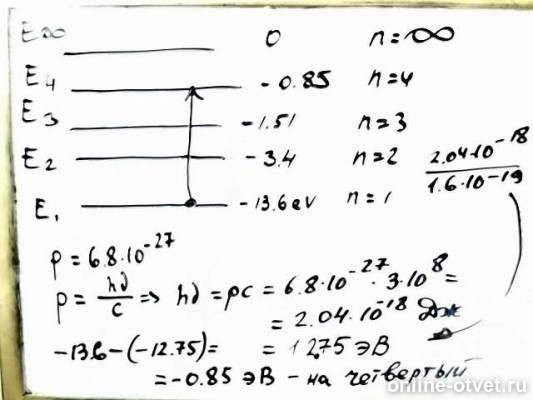 E∞ 0 n=∞
E4 -0.85 n=4
E3 -1.51 n=3
E2 -3.4 n=2
E1 -13.6eV n=1
2.04·10^-18
1.6·10^-19
p=6.8·10^-27
p=hν/c => hν=pc=6.8·10^-27·3·10^8=
=2.04·10^-18 Дж
-13.6-(-12.75)= =1275 ЭВ
=-0.85 ЭВ - на четвертый
online-otvet.ru